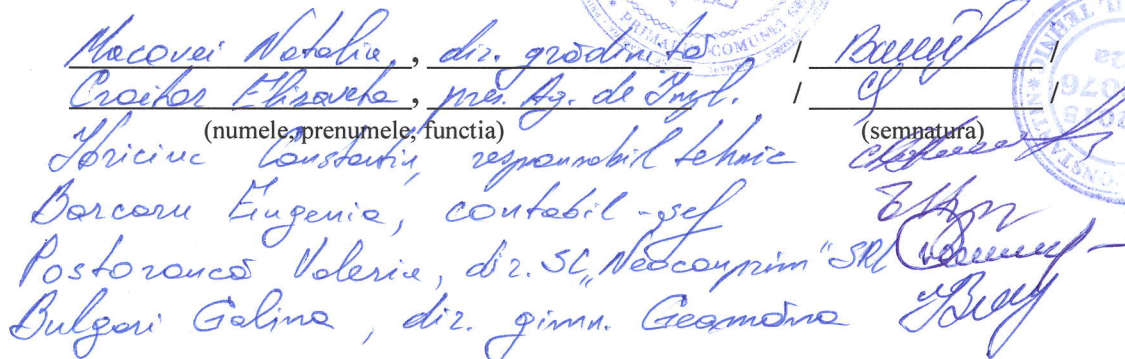 PRIMAR COMUNEI
Macovei Natalia, dir. grădinița / /
Croitor Elisaveta, preș. Ag. de Împl. / /
(numele, prenumele, functia) (semnatura)
Constantin, responsabil tehnic
Barcaru Eugenia, contabil-șef
Postoroncă Valeria, dir. SC „Neocomprim" SRL
Bulgari Galina, dir. gimn. Geamăna